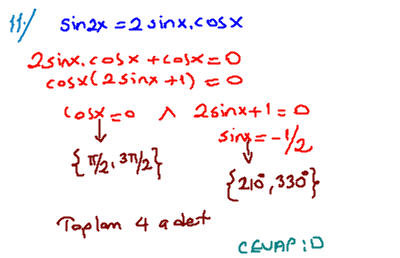 11// sin2x = 2 sinx.cosx
2sinx.cosx + cosx = 0
cosx(2sinx+1) = 0
cosx = 0 ∧ 2sinx+1 = 0
sinx = -1/2
{π/2, 3π/2}
{210°, 330°}
Toplam 4 adet
CEVAP: D